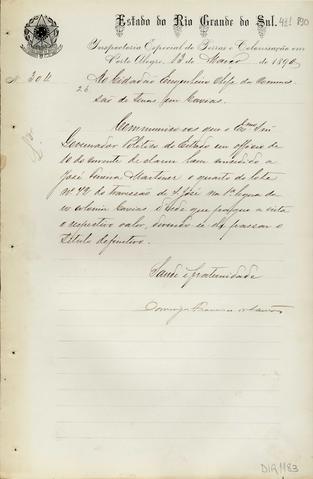 Estado do Rio Grande do Sul.
Inspectoria Especial de Terras e Colonisação em
Porto Alegre, 13 de Março de 1890
N. 304
Ao Cidadão Engenheiro Chefe da Commis
são de Terras em Caxias.
Communico-vos que o Exmo Snr
Governador Politico do Estado em officio de
10 do corrente declarou haver concedido a
José a quarto do lote
nº 42 do travessão de S. José na 1ª legua da
ex colonia Caxias, desde que pague a vista
o respectivo valor, devendo se lhe passar o
titulo definitivo.
Saude e fraternidade
DIR 1183